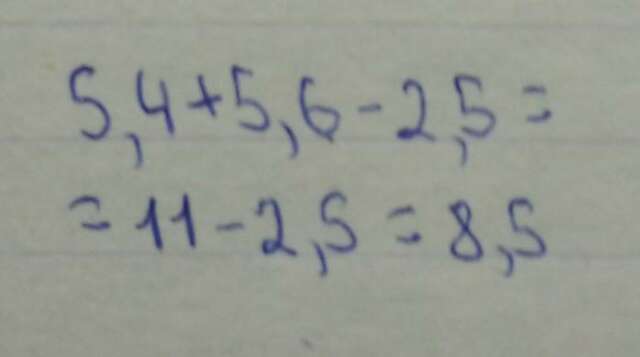 5,4+5,6-2,5=
=11-2,5=8,5